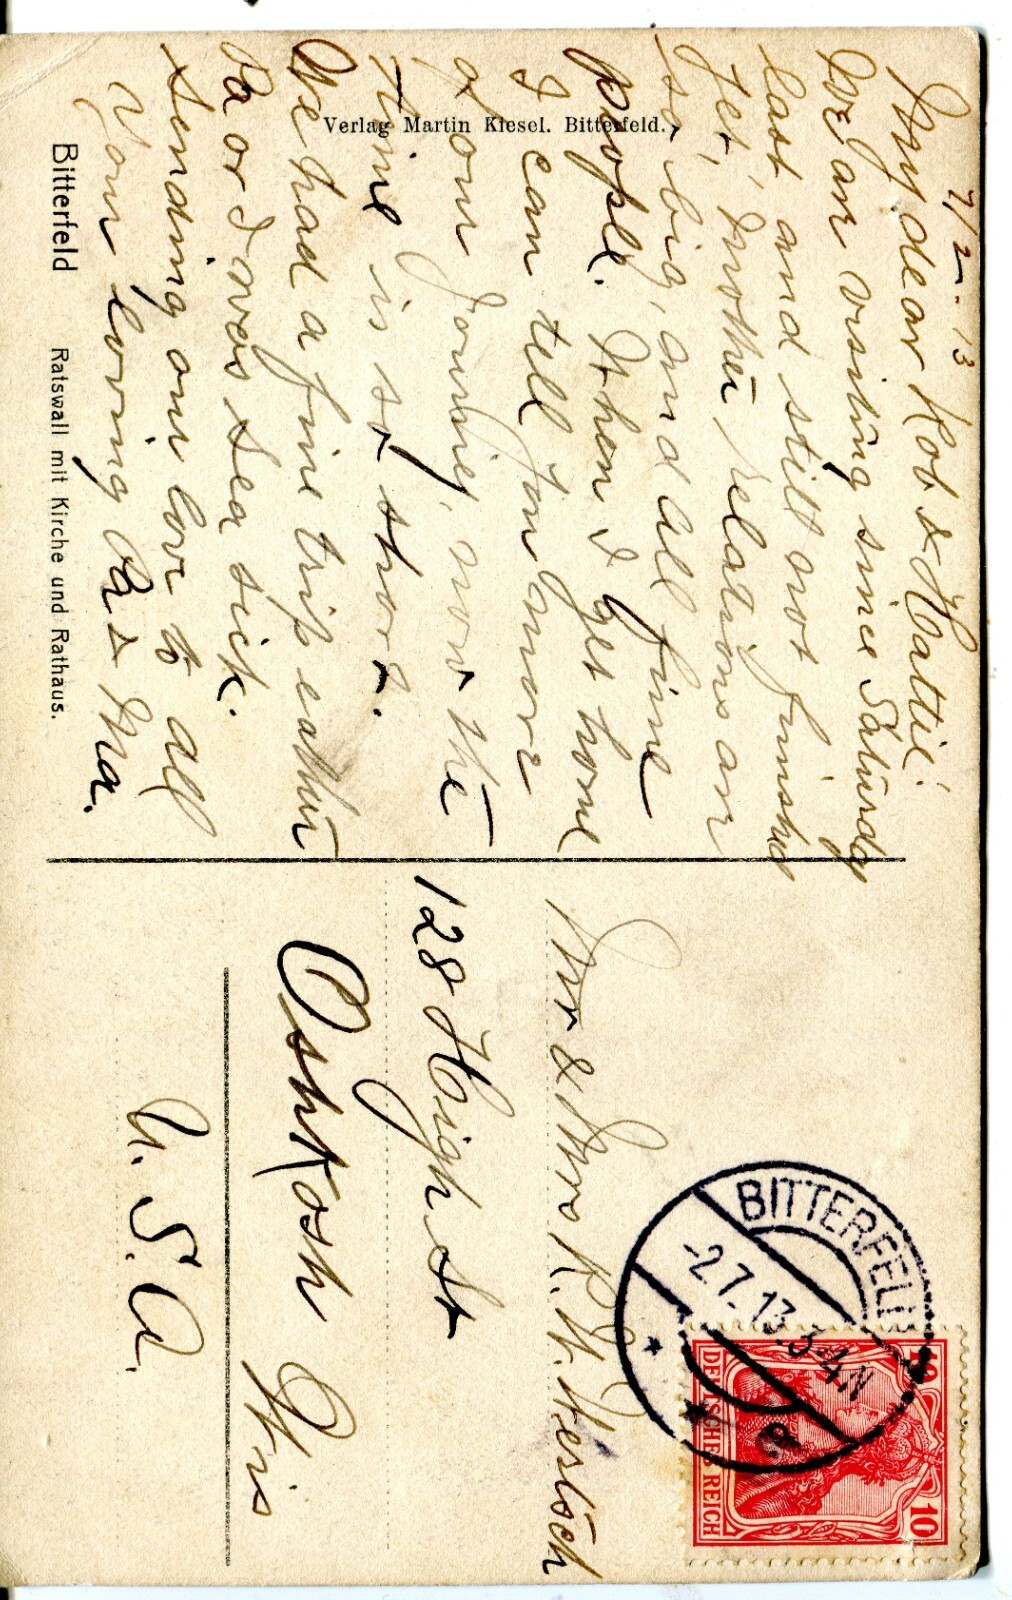 7/2 - 13
My dear Rob & Hattie:
We are visiting since Saturday
last and still not finished
yet, Mother relations are
so big, and all fine
people. When I get home
I can tell you more
of our Journey, now the
time is so short.
We had a fine trip eather
Pa or I were sea sick.
Sending our love to all
Your loving Pa & Ma.
Bitterfeld Ratswall mit Kirche und Rathaus.
Verlag Martin Kiesel. Bitterfeld.
Mr & Mrs R. W.
128 High St
Oshkosh Wis
U. S. A.
BITTERFELD
-2.7.13.3-4N
DEUTSCHES REICH
10